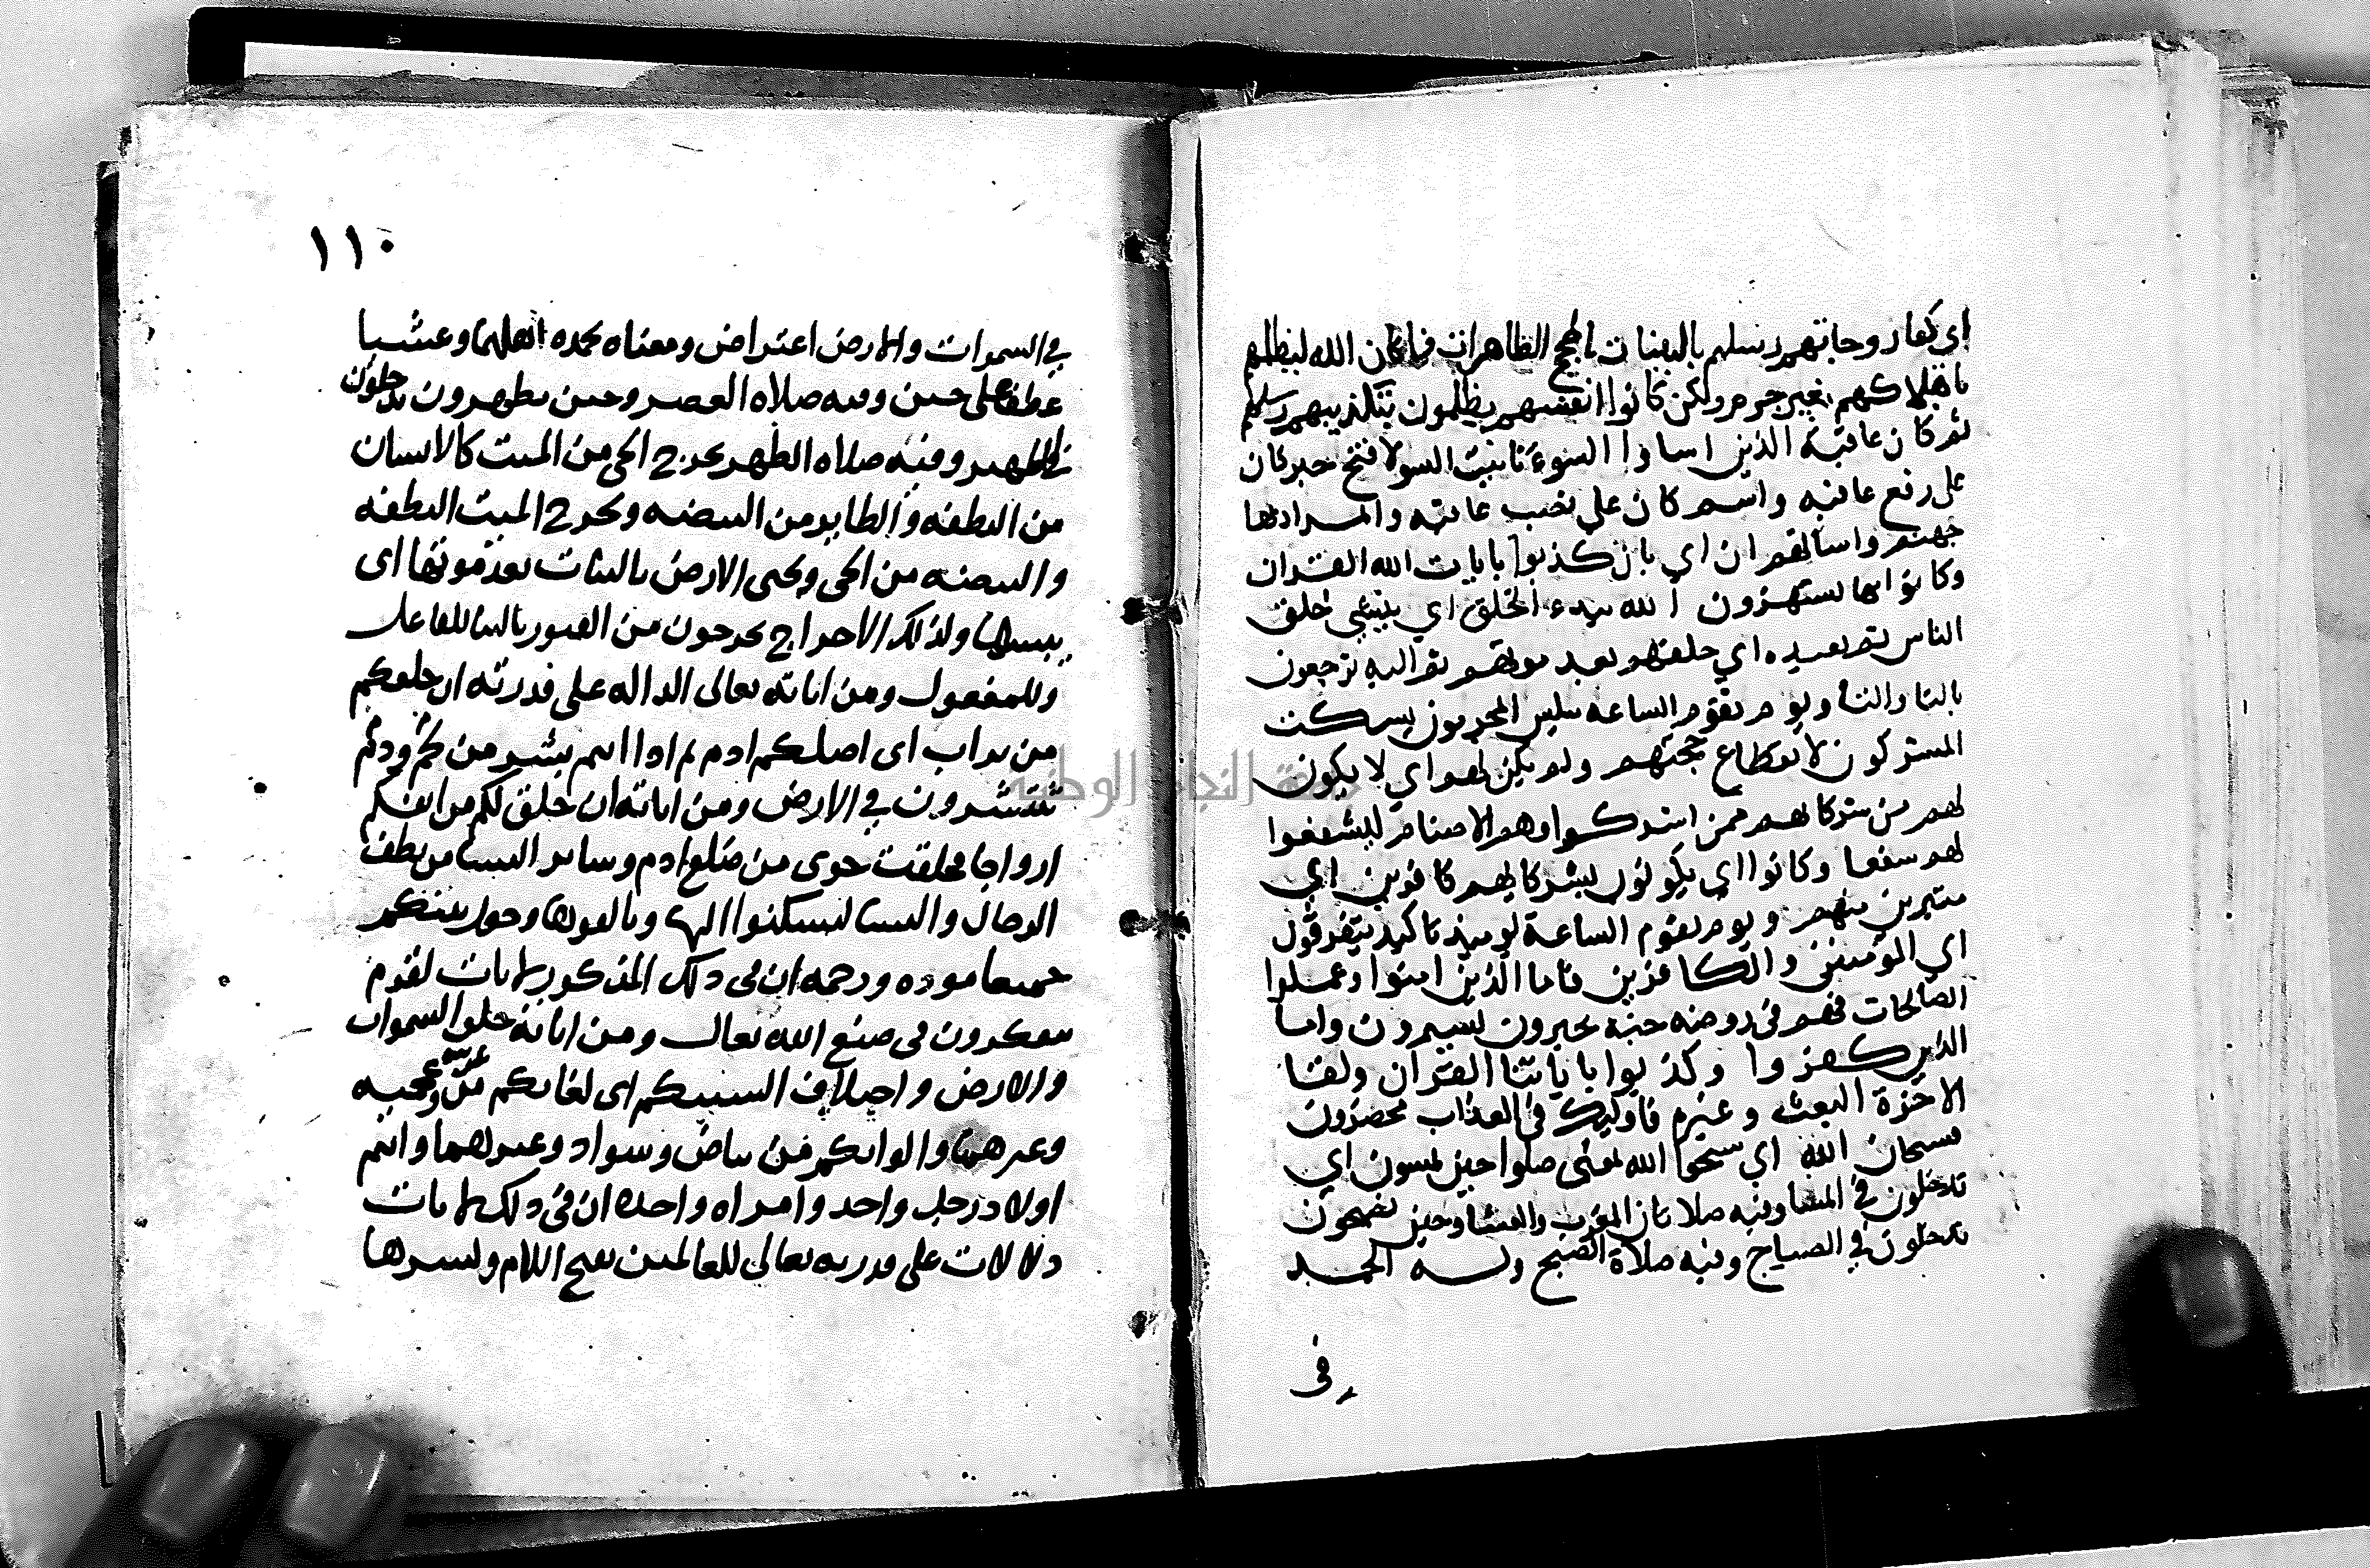 اي كفار وجاتهم رسلهم بالبينات بالحجج الظاهرات فما كان الله ليظلمهم
باهلاكهم بغير جرم ولكن كانوا انفسهم يظلمون بتكذيبهم رسلهم
ثم كان عاقبة الذين اساوا السوء تانيث السولا فتح خبر كان
على رفع عاقبه واسم كان على نصب عاقبه والمراد بها
جهنم واساتهم ان اي بان كذبوا بايات الله القران
وكانوا بها يستهزون الله يبدء الخلق اي ينشي خلق
الناس ثم يعيده اي خلقهم بعد موتهم ثم اليه ترجعون
بالتا واليا ويوم تقوم الساعة يبلس المجرمون يسكت
المشركون لانقطاع حجتهم ولم يكن لهم اي لا يكون
لهم من شركايهم ممن اشركوا وهم الاصنام ليشفعوا
لهم شفعا وكانوا اي يكونون بشركايهم كافرين اي
متبرين منهم ويوم تقوم الساعة يوميذ تاكيد يتفرقون
اي المؤمنين والكافرين فاما الذين امنوا وعملوا
الصالحات فهم في روضه جنه يحبرون يسرون واما
الذين كفروا وكذبوا باياتنا القران ولقا
الاخرة البعث وغيره فاوليك في العذاب محضرون
فسبحان الله اي سبحوا الله بمعنى صلوا حين تمسون اي
تدخلون في المسا وفيه صلاتان المغرب والعشا وحين تصبحون
تدخلون في الصباح وفيه صلاة الصبح وله الحمد
في
١١٠
في السموات والارض اعتراض ومعناه يحمده اهلهما وعشيا
عطف على حين وفيه صلاه العصر وحين تظهرون تدخلون
في الظهيره وفيه صلاه الظهر يخرج الحي من الميت كالانسان
من النطفه والطاير من البيضه ويخرج الميت النطفه
والبيضه من الحي ويحيى الارض بالنبات بعد موتها اى
يبسها وكذلك الاخراج تخرجون من القبور بالبنا للفاعل
وللمفعول ومن اياته تعالى الداله على قدرته ان خلقكم
من تراب اى اصلكم ادم ثم اذا انتم بشر من لحم ودم
تنتشرون في الارض ومن اياته ان خلق لكم من انفسكم
ازواجا فخلقت حوى من ضلع ادم وساير النسا من نطف
الرجال والنسا لتسكنوا اليها وتالفوها وجعل بينكم
جميعا موده ورحمه ان في ذلك المذكور لايات لقوم
يتفكرون في صنع الله تعالى ومن اياته خلق السموات
والارض واختلاف السنتكم اى لغاتكم من عربيه وعجميه
وغيرهما والوانكم من بياض وسواد وغيرهما وانتم
اولاد رجل واحد وامراه واحده ان في ذلك لايات
دلالات على قدرته تعالى للعالمين بفتح اللام وكسرها